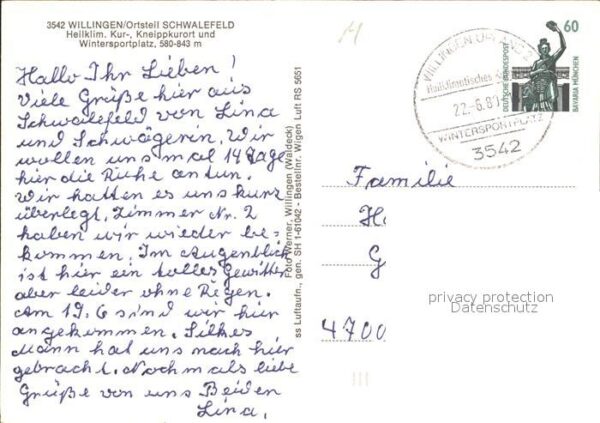 3542 WILLINGEN/Ortsteil SCHWALEFELD
Heilklim. Kur-, Kneippkurort und
Wintersportplatz, 580-843 m
Hallo Ihr Lieben!
Viele Grüße hier aus
Schwalefeld von Lina
und Schwägerin. Wir
wollen uns mal 14 Tage
hier die Ruhe antun.
Wir hatten es uns kurz
überlegt, Zimmer Nr. 2
haben wir wieder be-
kommen. Im Augenblick
ist hier ein tolles Gewitter
aber leider ohne Regen.
Am 19.6 sind wir hier
angekommen. Silkes
Mann hat uns nach hier
gebracht. Nochmals liebe
Grüße von uns Beiden
Lina.
Foto Werner, Willingen (Waldeck)
ss Luftaufn., gen. SH 1-61042 - Bestellnr. Wigen Luft RS 5651
WILLINGEN
Heilklimatisches
22.-6.8
WINTERSPORTPLATZ
3542
60
DEUTSCHE BUNDESPOST
BAVARIA MÜNCHEN
Familie
H.
G
4700
privacy protection
Datenschutz